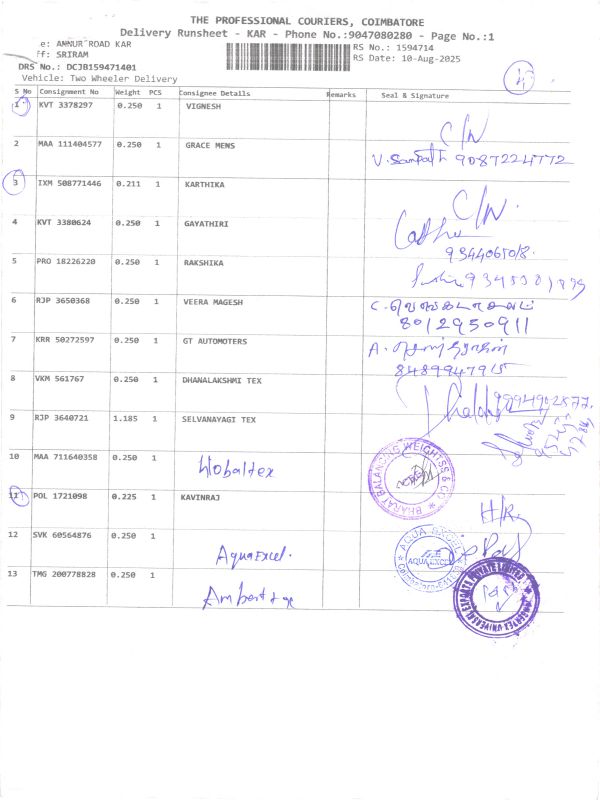 THE PROFESSIONAL COURIERS, COIMBATORE
Delivery Runsheet - KAR - Phone No.:9047080280 - Page No.:1
e: ANNUR ROAD KAR
RS No.: 1594714
ff: SRIRAM
RS Date: 10-Aug-2025
DRS No.: DCJB159471401
Vehicle: Two Wheeler Delivery
S No Consignment No Weight PCS Consignee Details Remarks Seal & Signature
1 KVT 3378297 0.250 1 VIGNESH C/N
2 MAA 111404577 0.250 1 GRACE MENS V. Sampath 9087224772
3 IXM 508771446 0.211 1 KARTHIKA C/N.
4 KVT 3380624 0.250 1 GAYATHIRI
5 PRO 18226220 0.250 1 RAKSHIKA
6 RJP 3650368 0.250 1 VEERA MAGESH
8012950911
7 KRR 50272597 0.250 1 GT AUTOMOTERS
8489947915
8 VKM 561767 0.250 1 DHANALAKSHMI TEX
9 RJP 3640721 1.185 1 SELVANAYAGI TEX
10 MAA 711640358 0.250 1 Globaltex BHARAT BALANCING WEIGHTSS & CO
11 POL 1721098 0.225 1 KAVINRAJ H/R.
12 SVK 60564876 0.250 1 AquaExcel. AQUA EXCEL
13 TMG 200778828 0.250 1